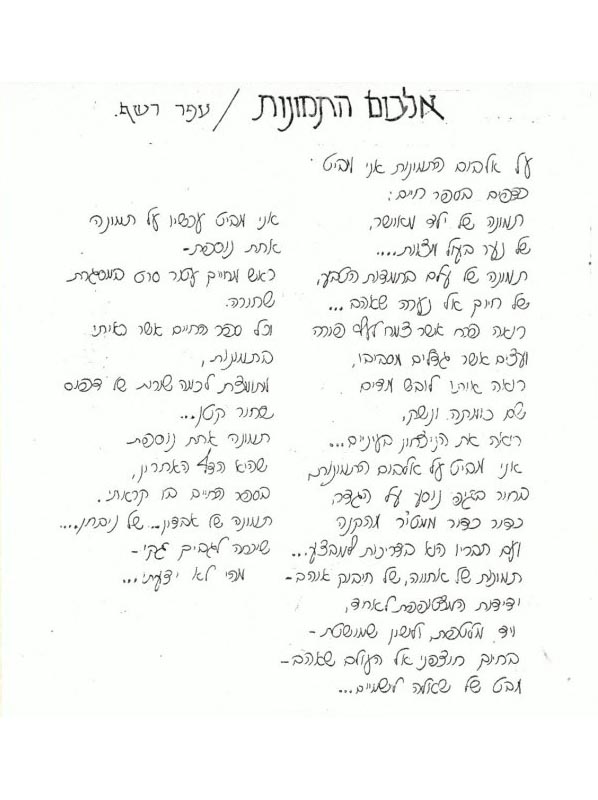 אלבום התמונות / עפר רשף.
על אלבום התמונות אני מביט
כצפים בספר חיים:
תמונה של ילד מאושר,
של נער בעול מצוות....
תמונה של עלם בחמדות הטבע,
של חיוך אל נערה שאהב...
רואה פרח אשר צמח לעלף פורה
ועצים אשר גדלים מסביבו,
רואה אותו לובש מדים
שם כומתה ונשק,
רואה את הניצחון בעיניים...
אני מביט על אלבום התמונות,
בחור בג'יפ נוסע על הגדר,
כדור כדור ממטיר מהקנה
ועם חבריו הוא בדריכות למבצע...
תמונות של אחווה, של חיבוק אוהב-
ידידות המצטופפת לאחד,
ויד מלטפת, ולשון שמושטת-
בחיוך חוצפני אל העולם שאהב-
מבט של שאלה לשמיים...
אני מביט עכשיו על תמונה
אחת נוספת-
ראש מחייך עטור סרט במסגרת
שחורה.
וכל ספר החיים אשר ראיתי
בתמונות,
מתומצת לכמה שורות של דפוס
שחור קטן...
תמונה אחת נוספת
שהיא הדף האחרון,
בספר החיים בו קראתי.
תמונה של אבדון... של ניבחן....
שיכחה לגביך גקי-
מהי לא ידעתי...